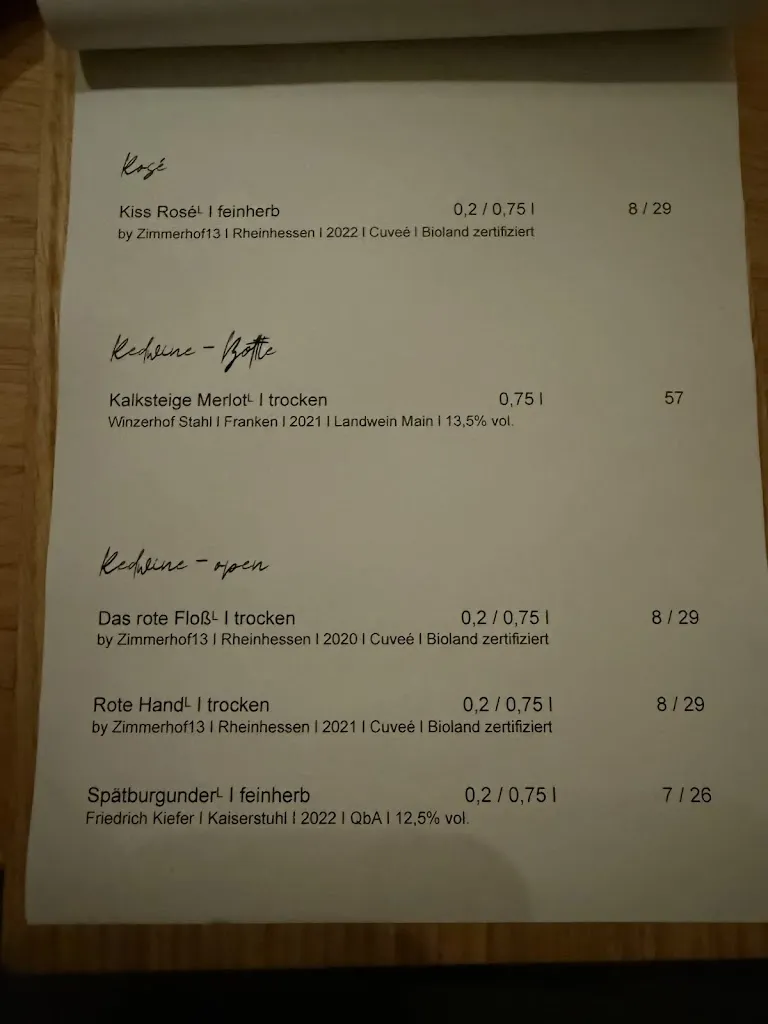 Rosé
Kiss Roséᴸ I feinherb 0,2 / 0,75 l 8 / 29
by Zimmerhof13 I Rheinhessen I 2022 I Cuveé I Bioland zertifiziert
Redwine - Bottle
Kalksteige Merlotᴸ I trocken 0,75 l 57
Winzerhof Stahl I Franken I 2021 I Landwein Main I 13,5% vol.
Redwine - open
Das rote Floßᴸ I trocken 0,2 / 0,75 l 8 / 29
by Zimmerhof13 I Rheinhessen I 2020 I Cuveé I Bioland zertifiziert
Rote Handᴸ I trocken 0,2 / 0,75 l 8 / 29
by Zimmerhof13 I Rheinhessen I 2021 I Cuveé I Bioland zertifiziert
Spätburgunderᴸ I feinherb 0,2 / 0,75 l 7 / 26
Friedrich Kiefer I Kaiserstuhl I 2022 I QbA I 12,5% vol.